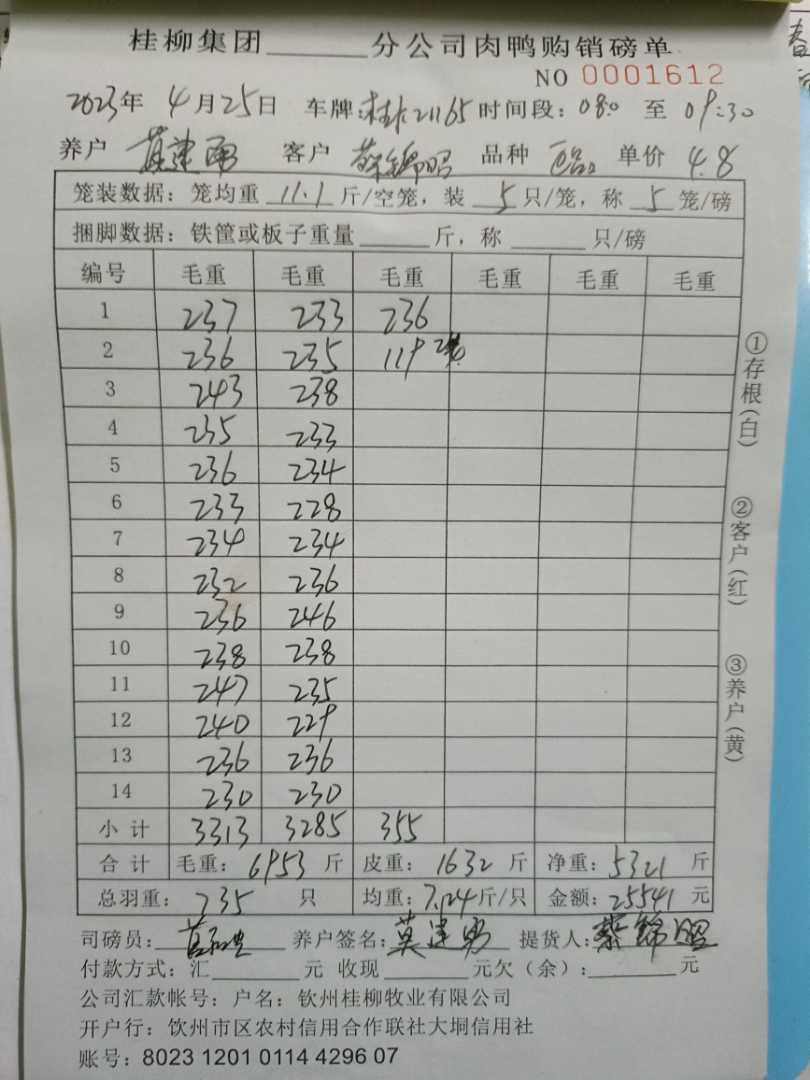 桂柳集团______分公司肉鸭购销磅单
NO 0001612
2023年 4月25日 车牌:桂 21165 时间段:08:0 至 09:30
养户 莫建勇 客户 蔡锦昭 品种 单价 4.8
笼装数据:笼均重 11.1 斤/空笼,装 5 只/笼,称 5 笼/磅
捆脚数据:铁筐或板子重量______斤,称______只/磅
编号 毛重 毛重 毛重 毛重 毛重 毛重
1 237 233 236
2 236 235 119
3 243 238
4 235 233
5 236 234
6 233 228
7 234 234
8 232 236
9 236 246
10 238 238
11 247 235
12 240 229
13 236 236
14 230 230
小计 3313 3285 355
合计 毛重:6953 斤 皮重:1632 斤 净重:5321 斤
总羽重:735 只 均重:7.24斤/只 金额:25541 元
司磅员: 养户签名:莫建勇 提货人:蔡锦昭
付款方式:汇______元 收现______元欠(余):______元
公司汇款帐号:户名:钦州桂柳牧业有限公司
开户行:钦州市区农村信用合作联社大垌信用社
账号:8023 1201 0114 4296 07
①存根(白)
②客户(红)
③养户(黄)
春